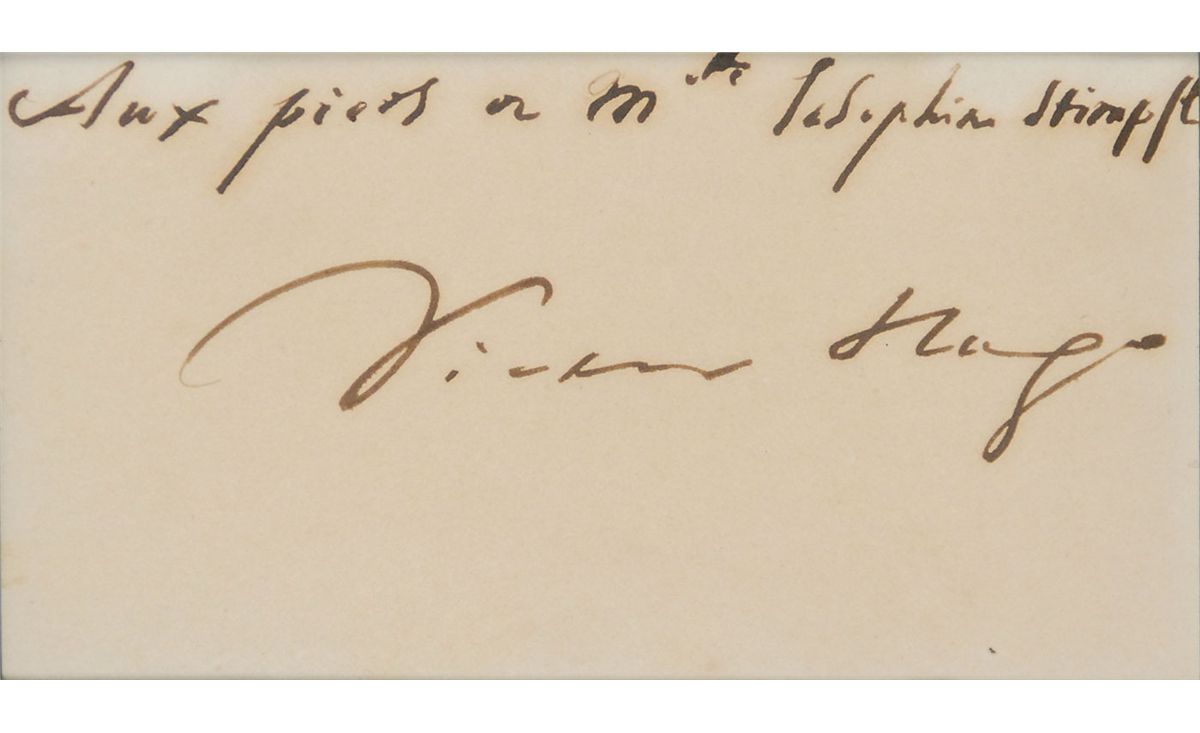 Aux pieds de Mlle Joséphine Stimpft
Victor Hugo